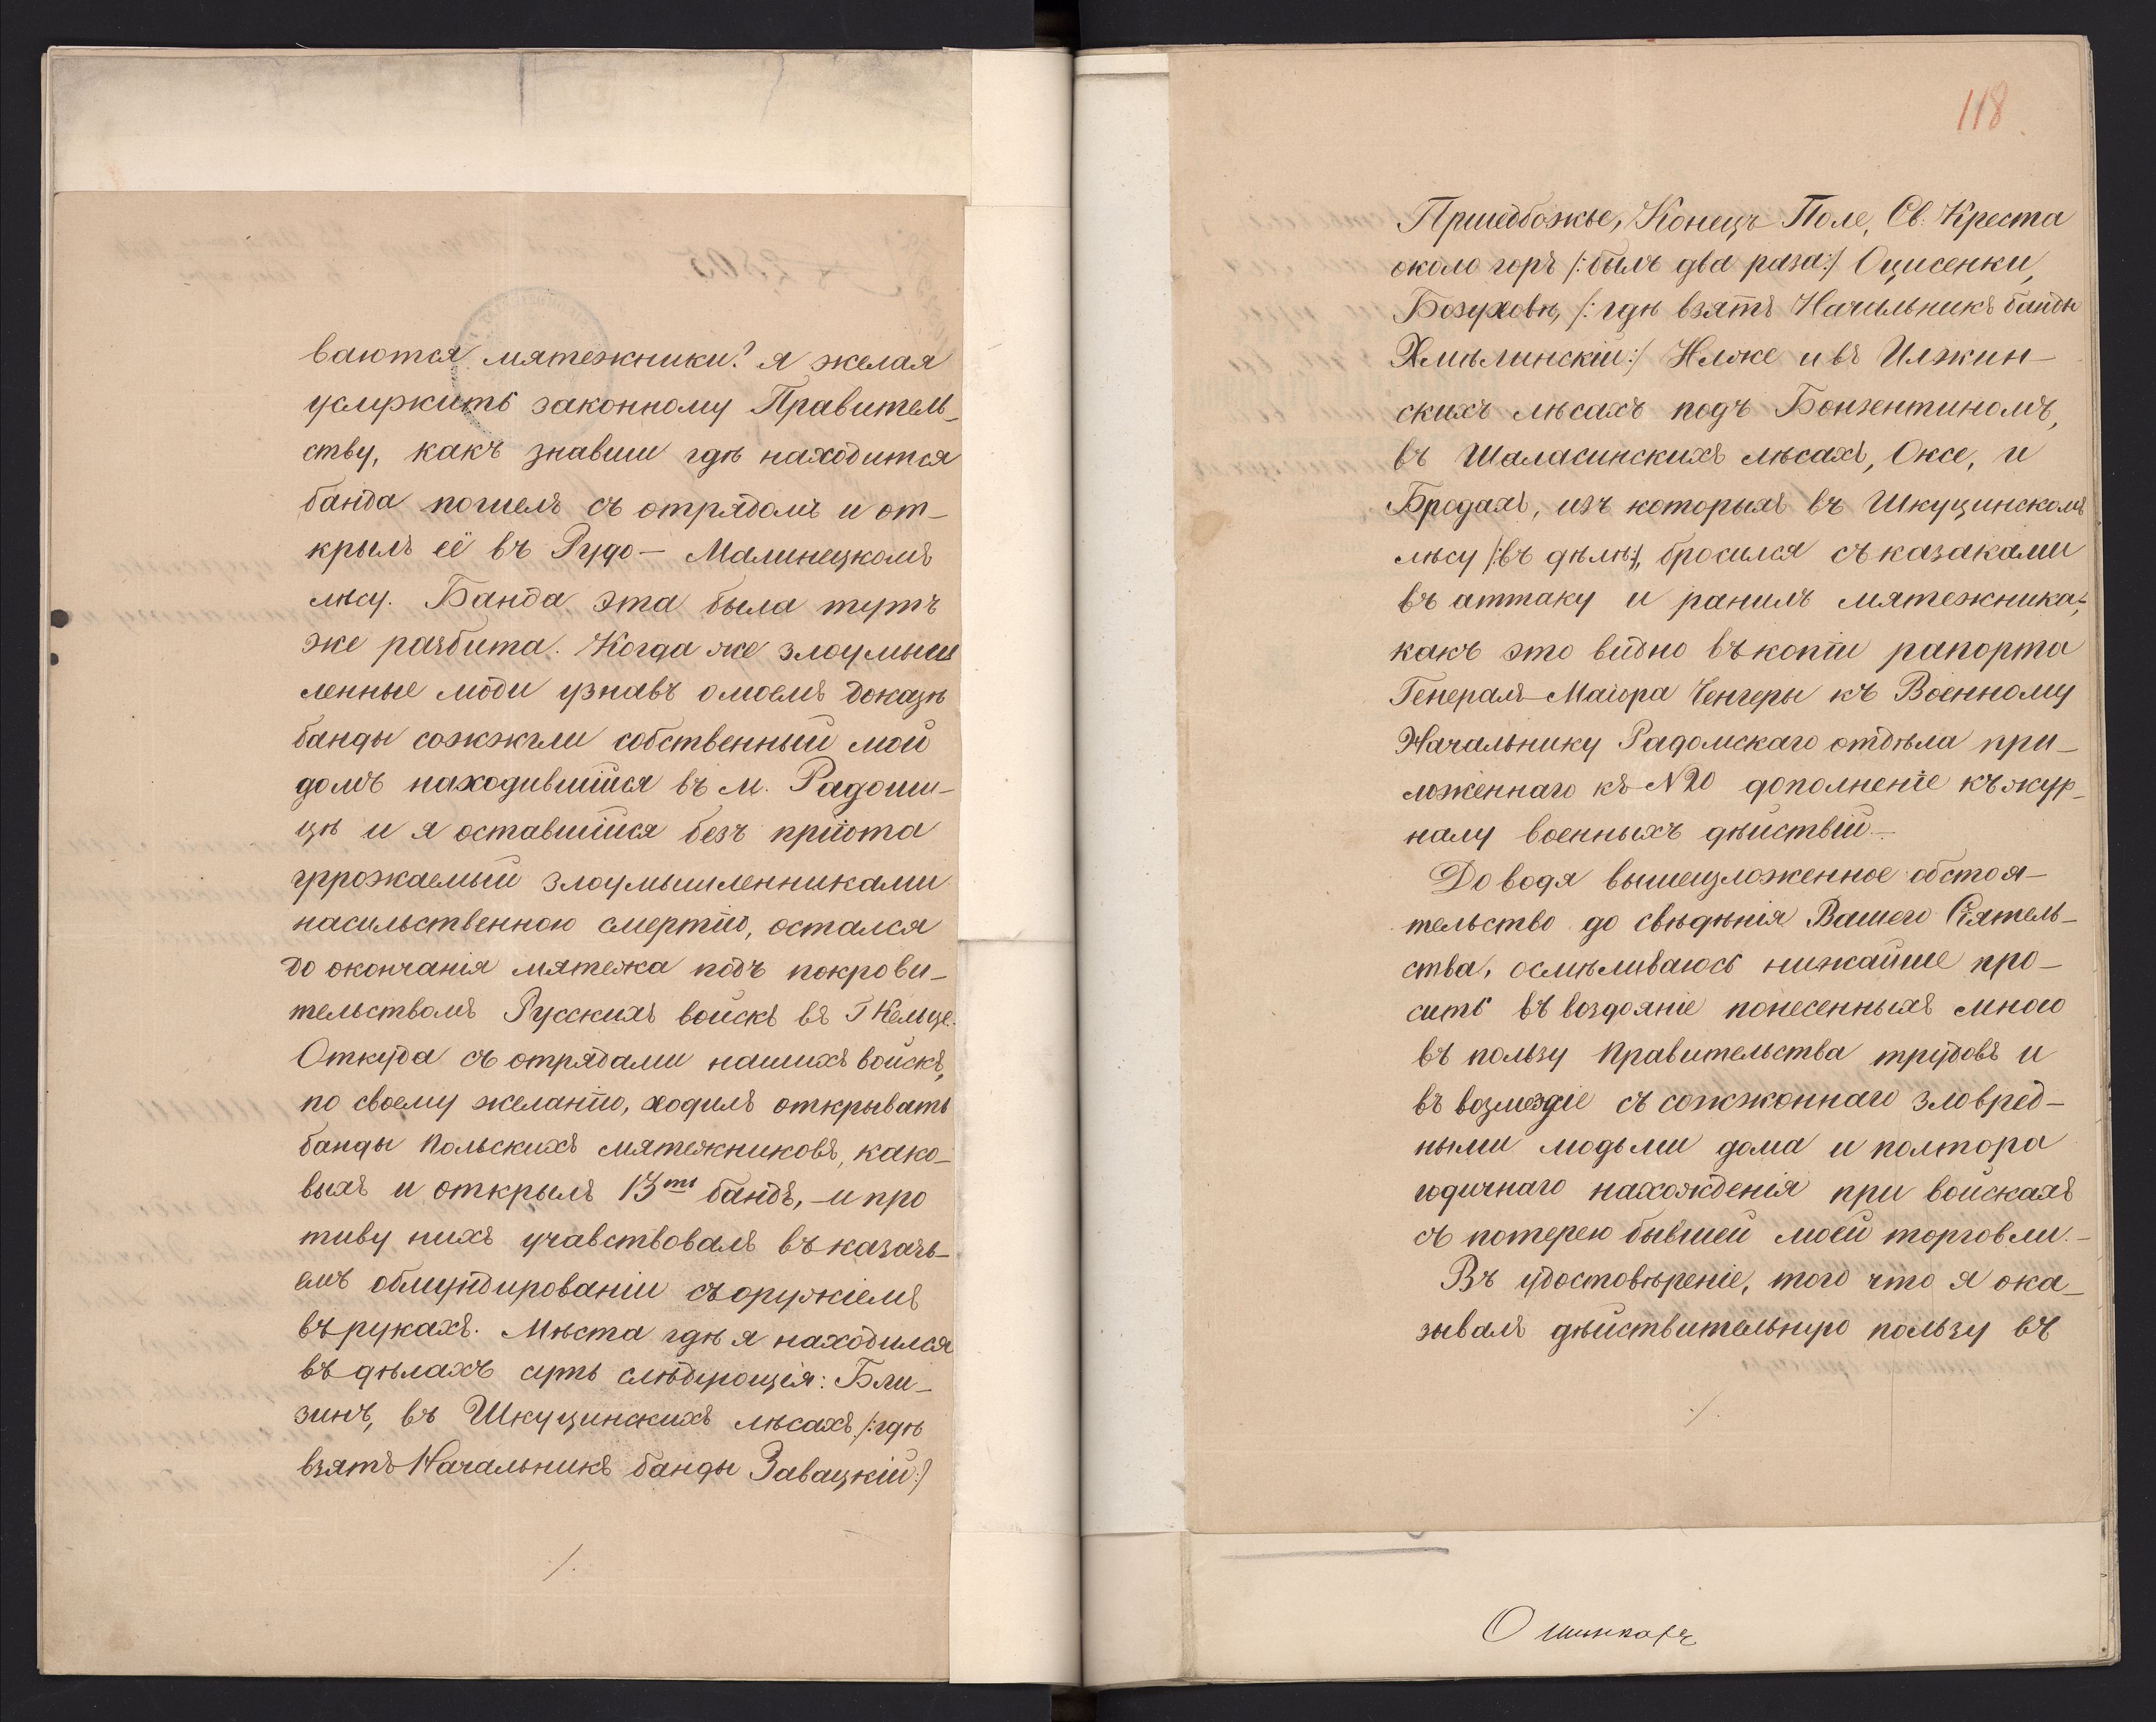 ваются мятежники? я желая
услужить законному Правитель-
ству, какъ знавши гдѣ находится
банда пошелъ съ отрядомъ и от-
крылъ её въ Рудо- Малинецкомъ
лѣсу. Банда эта была тутъ
же разбита. Когда же злоумыш
ленные люди узнавъ о моемъ доказѣ
банды сожжгли собственный мой
домъ находившійся въ м. Радоши-
цѣ и я оставшійся безъ пріюта
угрожаемый злоумышленниками
насильственною смертію, остался
до окончанія мятежа подъ покрови-
тельствомъ Русскихъ войскъ въ Г Кельце.
Откуда съ отрядами нашихъ войскъ,
по своему желанію, ходилъ открывать
банды Польскихъ мятежниковъ, како-
выхъ и открылъ 13ть бандъ, - и про
тиву нихъ учавствовалъ въ казачь-
емъ обмундированіи съ оружіемъ
въ рукахъ. Мѣста гдѣ я находился
въ дѣлахъ суть слѣдующія: Бли-
зинъ, въ Шкуцинскихъ лѣсахъ /:гдѣ
взятъ Начальникъ банды Завацкій:/
./.
118
Пршедбожье, Конецъ Поле, Св. Креста
около горъ /:былъ два раза:/ Оцисенки,
Бозуховѣ, /: гдѣ взятъ Начальникъ банды
Хмѣлинскій:/ Илже и въ Илжин-
скихъ лѣсахъ подъ Бонзентиномъ,
въ Шаласинскихъ лѣсахъ, Оксе, и
Бродахъ, изъ которыхъ въ Шкуцинскомъ
лѣсу /:въ дѣлѣ:/, бросился съ казаками
въ аттаку и ранилъ мятежника,
какъ это видно въ копіи рапорта
Генералъ-Маіора Ченгеры къ Военному
Начальнику Радомскаго отдѣла при-
ложеннаго къ N 20 дополненіе къ жур-
налу военныхъ дѣйствій.-
Доводя вышеизложенное обстоя-
тельство до свѣдѣнія Вашего Сіятель-
ства, осмѣливаюсь нижайше про-
сить въ воздояніе понесенныхъ мною
въ пользу Правительства трудовъ и
въ возмездіе съ сожжоннаго зловред-
ными людьми дома и полтора
годичнаго нахожденія при войскахъ
съ потерею бывшей моей торговли.-
Въ удостовѣреніе, того что я ока-
зывалъ дѣйствительную пользу въ
./.